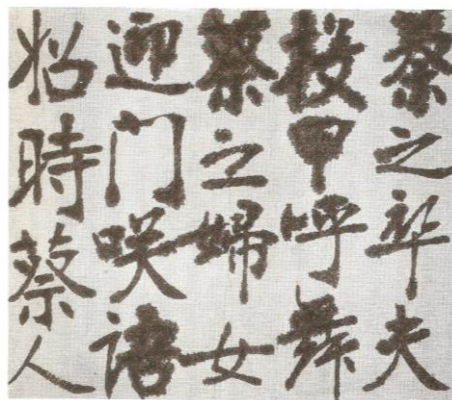 蔡之卒夫
投甲呼舞
蔡之婦女
迎门咲語
始時蔡人